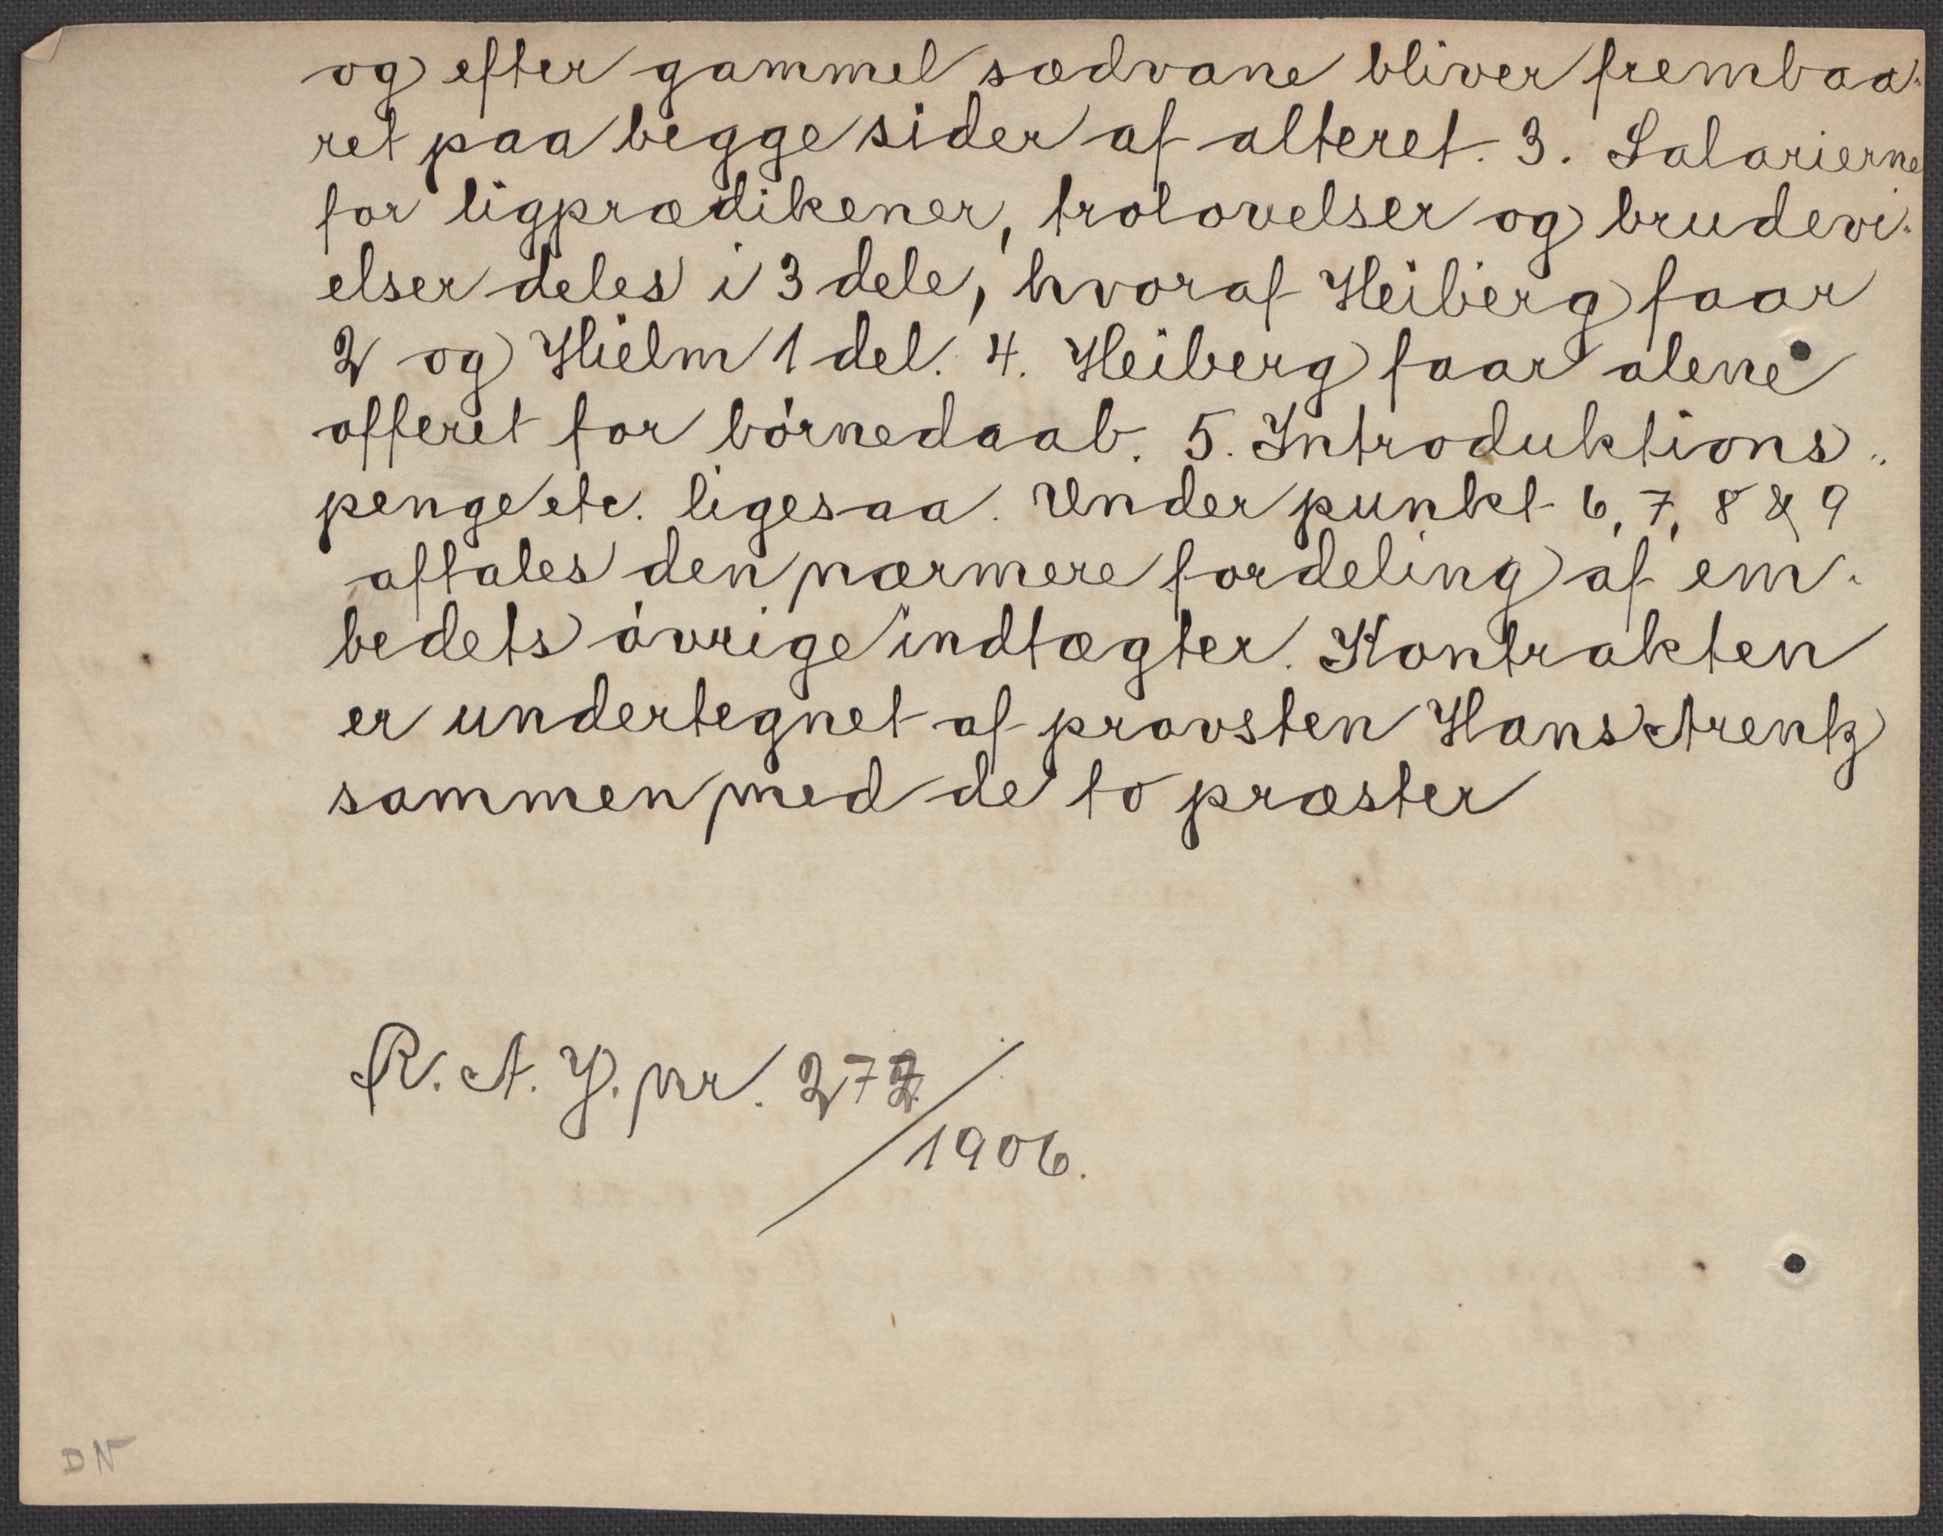 og efter gammel sædvane bliver frembaa-
ret paa begge sider af alteret. 3. Salarierne
for ligprædikener, trolovelser og brudevi-
elser deles i 3 dele, hvoraf Heiberg faar
2 og Hielm 1 del. 4. Heiberg faar alene
offeret for børnedaab. 5. Introduktions-
penge etc. ligesaa. Under punkt 6, 7, 8 & 9
aftales den nærmere fordeling af em-
bedets øvrige indtægter. Kontrakten
er undertegnet af provsten Hans Arentz
sammen med de to præster
R. A. Y. nr. 272/1906.
DN